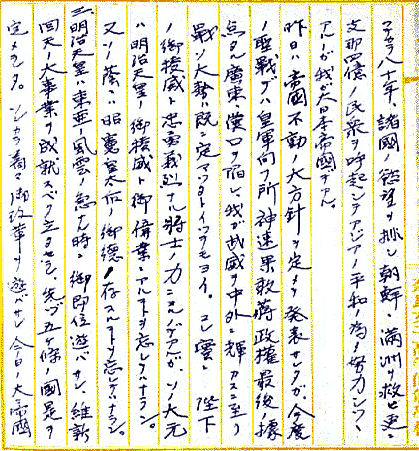 コヽニ八十年、諸國ノ慾望ヲ挫シ朝鮮、満洲ヲ救ヒ更ニ
支那四億ノ民衆ヲ呼起シテアジアノ平和ノ為メ努力シツヽ
アルノガ我ガ大日本帝國デアル。
昨日ハ帝國不動ノ大方針ヲ定メテ発表サレタガ、今度
ノ聖戰デハ皇軍向フ所神速果敢蔣政權最後ノ據
点タル廣東漢口ヲ陷レ我ガ武威ヲ中外ニ輝カスニ至リ
戰ノ大勢ハ既ニ定マツタトイツテモヨイ。コレ實ニ 陛下
ノ御稜威ト忠勇義烈ナル將士ノ力ニヨルノデアルガソノ大元
ハ 明治天皇ノ御稜威ト御偉業ニアルコトヲ忘レテハナラン。
又ソノ蔭ニ 昭憲皇太后ノ御德ノ存スルコトヲ忘レテハナラン。
三、明治天皇ハ東亜ノ風雲ノ急ナル時ニ御即位遊バサレ、維新
回天ノ大事業ヲ成就スベク立タセラレ、先ヅ五ヶ條ノ國是ヲ
定メラレタ。ソレカラ着々御改革ヲ遊バサレ今日ノ大帝國